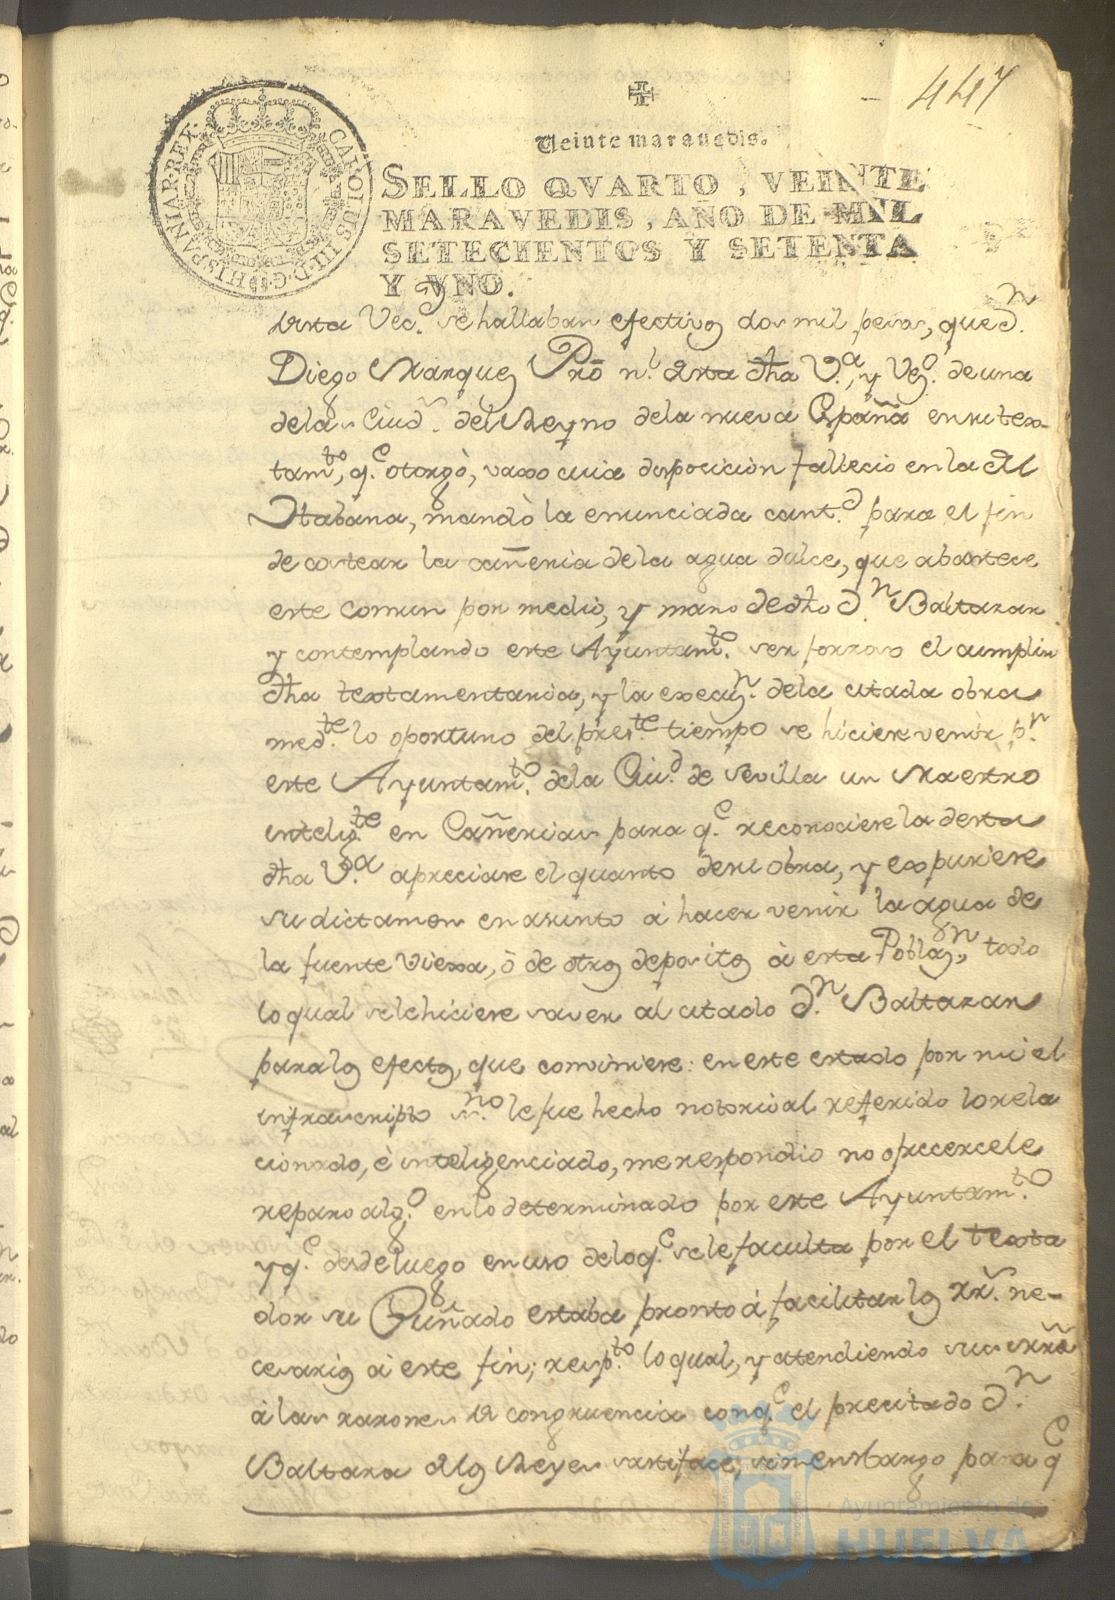 447
Veinte maravedis.
SELLO QVARTO, VEINTE
MARAVEDIS, AÑO DE MIL
SETECIENTOS Y SETENTA
Y VNO.
CAROLUS III D G HISPANIAR REX
Vec.ⁿ se hallaban efectivos dos mil pesos, que d.ⁿ
Diego Marquez Pro n.l desta dha V.a, y Vez.o de una
de las Ciud.s del Reyno de la nueva España en su tes-
tam.to, q.e otorgò, vaxo cuia disposicion fallecio en la
Habana, mandò la enunciada cant.d para el fin
de costear la cañeria de la agua dulce, que abastece
este comun por medio, y mano de dho d.n Baltazar
y contemplando este Ayuntam.to ser forzoso el cumplim
dha testamentaria, y la execu.n de la citada obra
med.te lo oportuno del pres.te tiempo se hiciere venir p.r
este Ayuntam.to de la Ciu.d de Sevilla un Maestro
intelig.te en Cañerias para q.e reconociere la desta
dha V.a apreciare el quanto de su obra, y expusiere
su dictamen en asunto à hacer venir la agua de
la fuente Viexa, ò de otros depositos à esta Poblaz.n, todo
lo qual se le hiciere saver al citado d.n Baltazar
para los efectos, que convíniere: en este estado por mi el
infraescripto s.no le fue hecho notorio al referido lo rela
cionado, è inteligenciado, me respondio no ofrecersele
reparo alg.o en lo determinado por este Ayuntam.to
y q.e desde luego en uso de lo q.e se le faculta por el testa
dor su Cuñado estaba pronto à facilitar los rr.s ne-
cesarios à este fin; resp.to lo qual, y atendiendo sus mrds
à las razones de congruencia con q.e el precitado d.n
Baltazar de los Reyes satisface, sin embargo para q.e
Ayuntamiento de
HUELVA